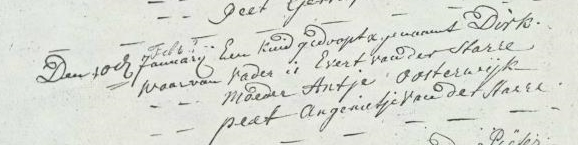 Peet Gerri
Febr:
Den 10de January Een kind gedoopt genaamt Dirk.
waarvan vader is Evert van der Starre
Moeder Antje Oosterwijk
peet Angenietje van der Starre.
Pieter